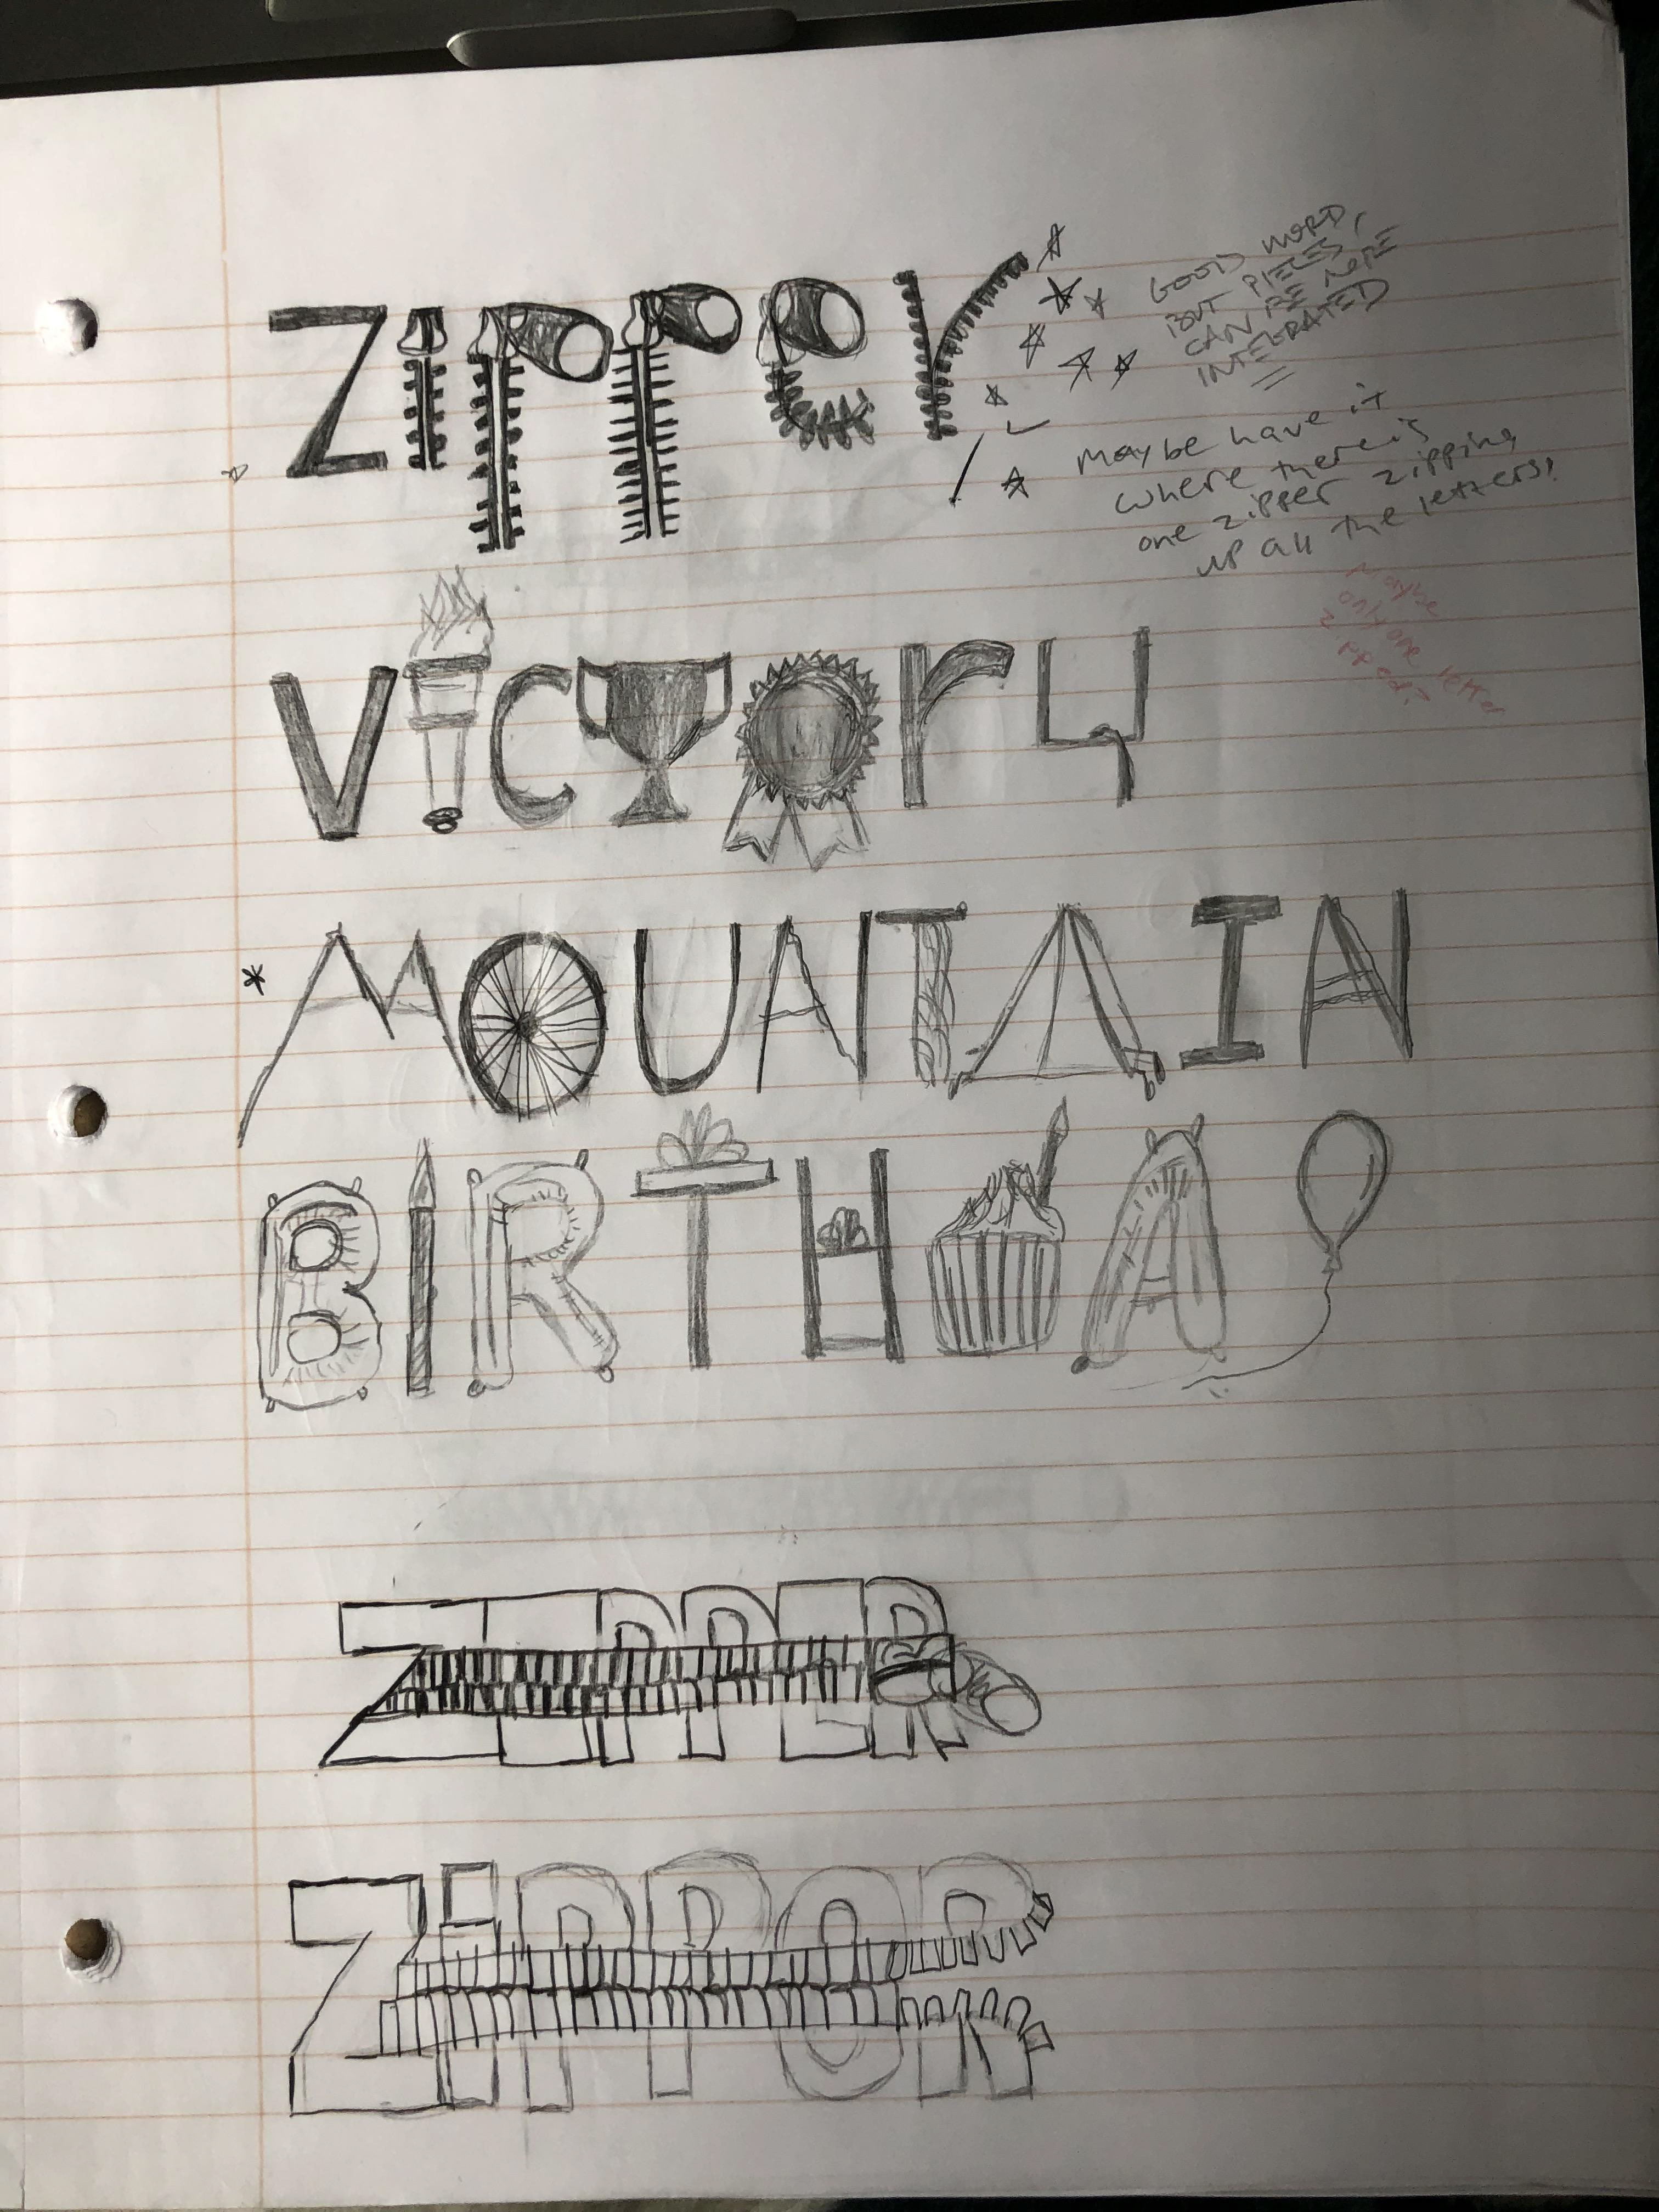 Zipper
GOOD WORD,
BUT PIECES
CAN BE MORE
INTEGRATED
Maybe have it
where there is
one zipper zipping
up all the letters!
Maybe
only one letter
zipped?
VicTOry
* MOUNTAIN
BIRTHDAY
ZIPPER
ZiPPeR